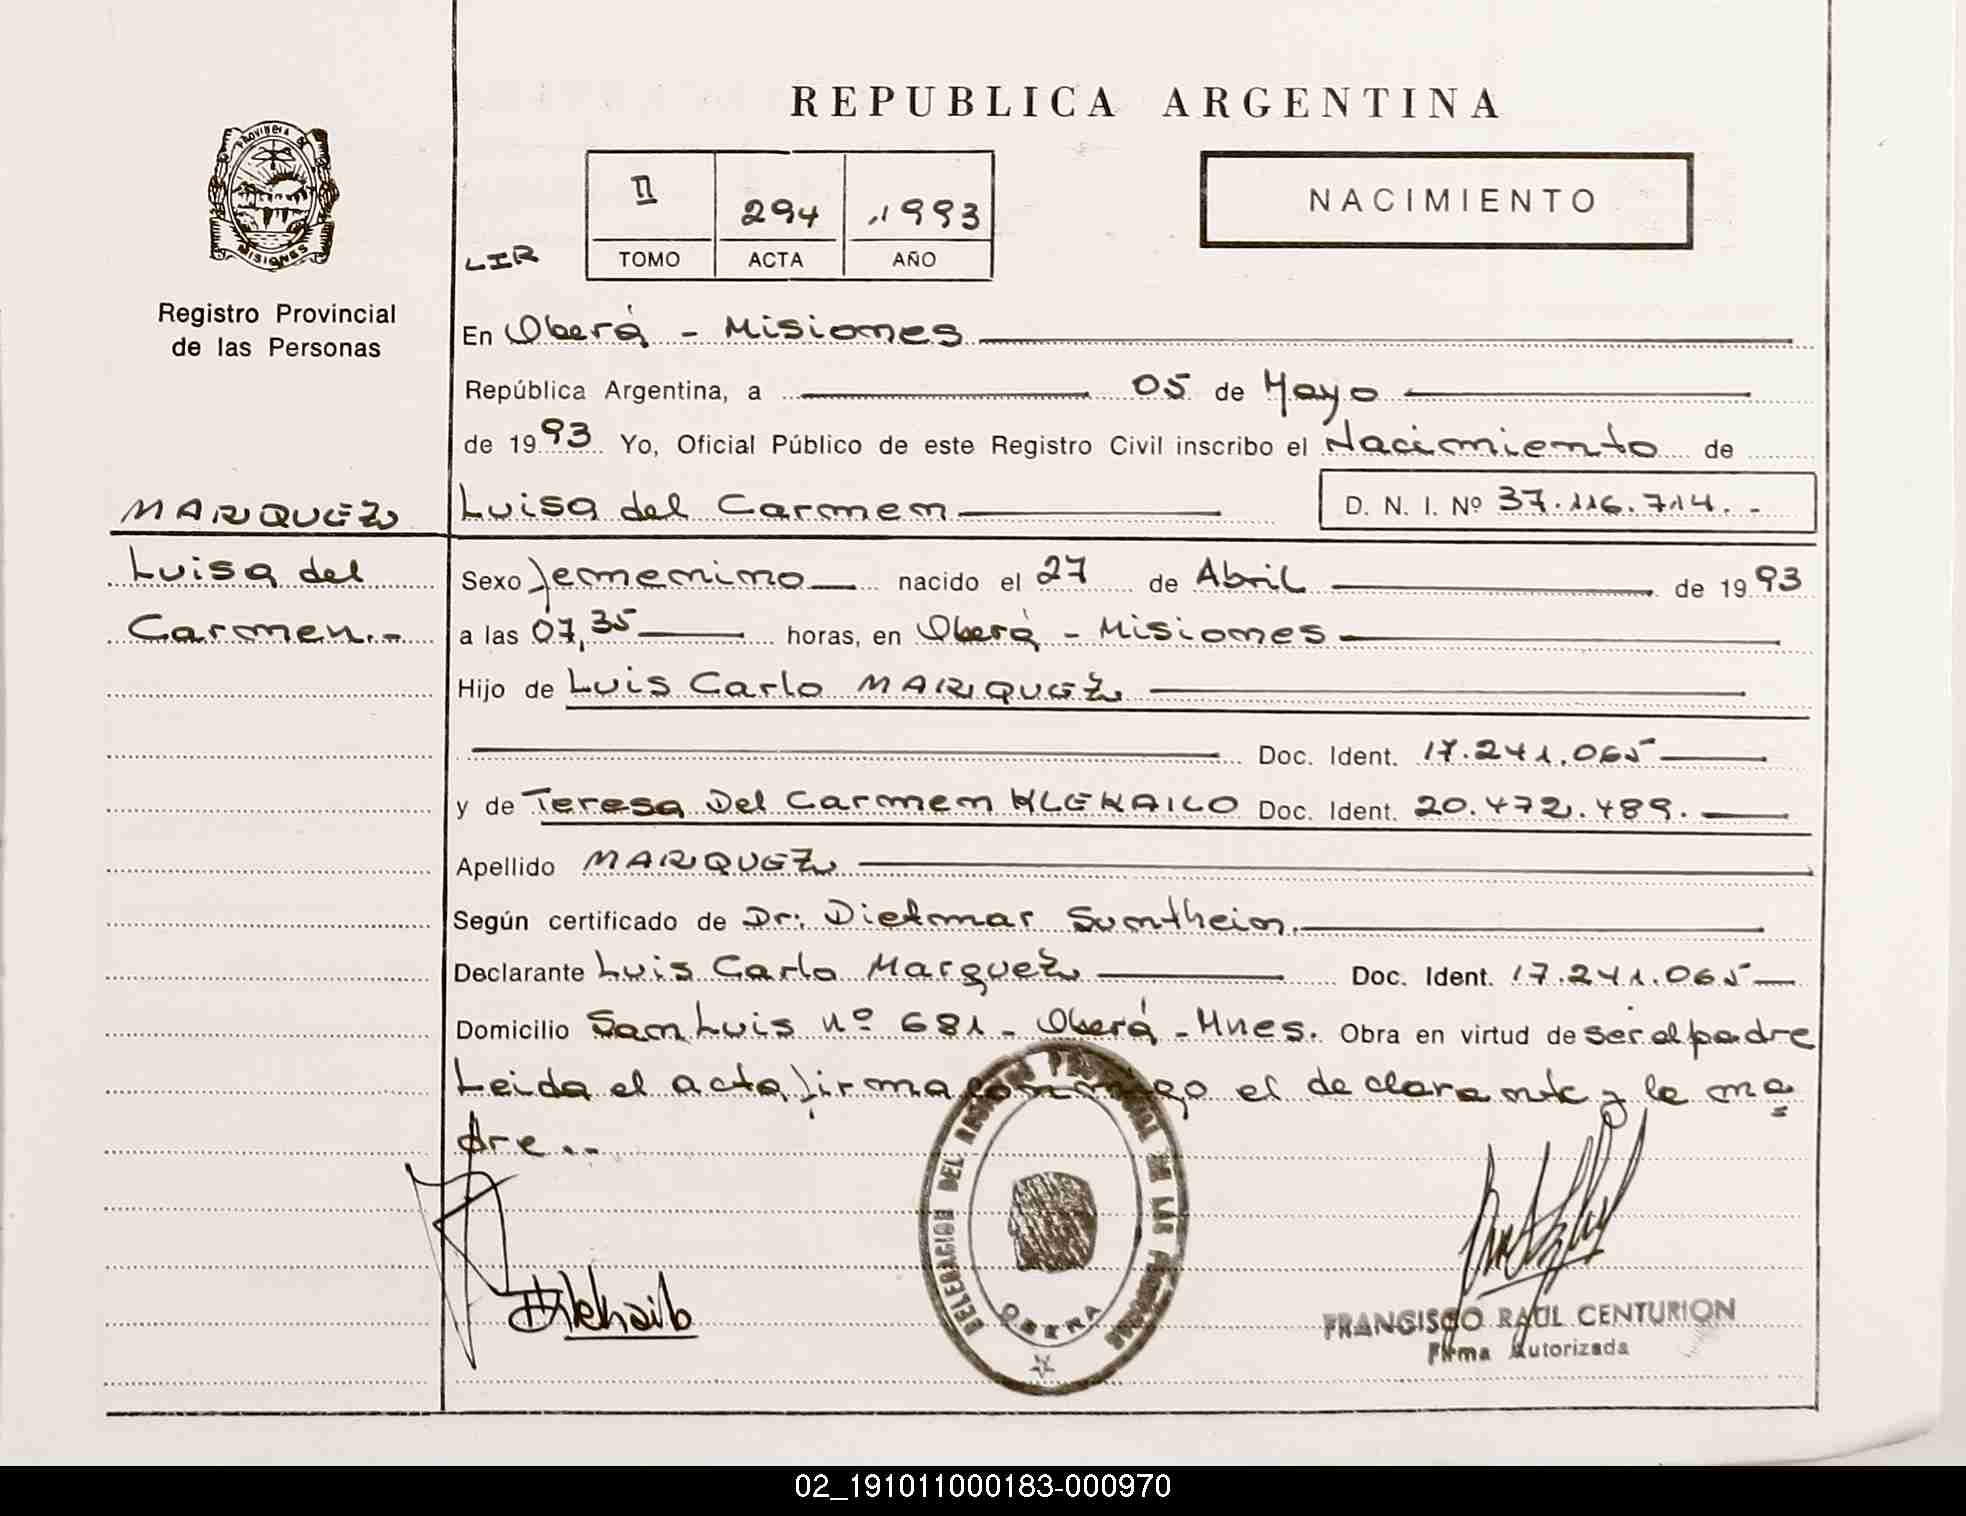 REPUBLICA ARGENTINA
PROVINCIA DE
MISIONES
Registro Provincial
de las Personas
II 294 1993
TOMO ACTA AÑO
NACIMIENTO
LIR
En Oberá - Misiones
República Argentina, a 05 de Mayo
de 1993 Yo, Oficial Público de este Registro Civil inscribo el Nacimiento de
MARQUEZ Luisa del Carmen D. N. I. Nº 37.116.714.-
Luisa del Sexo femenino nacido el 27 de Abril de 1993
Carmen.- a las 07,35 horas, en Oberá - Misiones
Hijo de Luis Carlo MARQUEZ
Doc. Ident. 17.241.065
y de Teresa Del Carmen KLEKAILO Doc. Ident. 20.472.489.
Apellido MARQUEZ
Según certificado de Dr: Dietmar Sontheim.
Declarante Luis Carlo Marquez Doc. Ident. 17.241.065
Domicilio San Luis nº 681 - Oberá - Mnes. Obra en virtud de ser el padre
Leida el acta, firma conmigo el declarante y la ma
dre..-
DELEGACION DEL REGISTRO PROVINCIAL DE LAS PERSONAS
OBERA
FRANCISCO RAUL CENTURION
Firma Autorizada
02_191011000183-000970